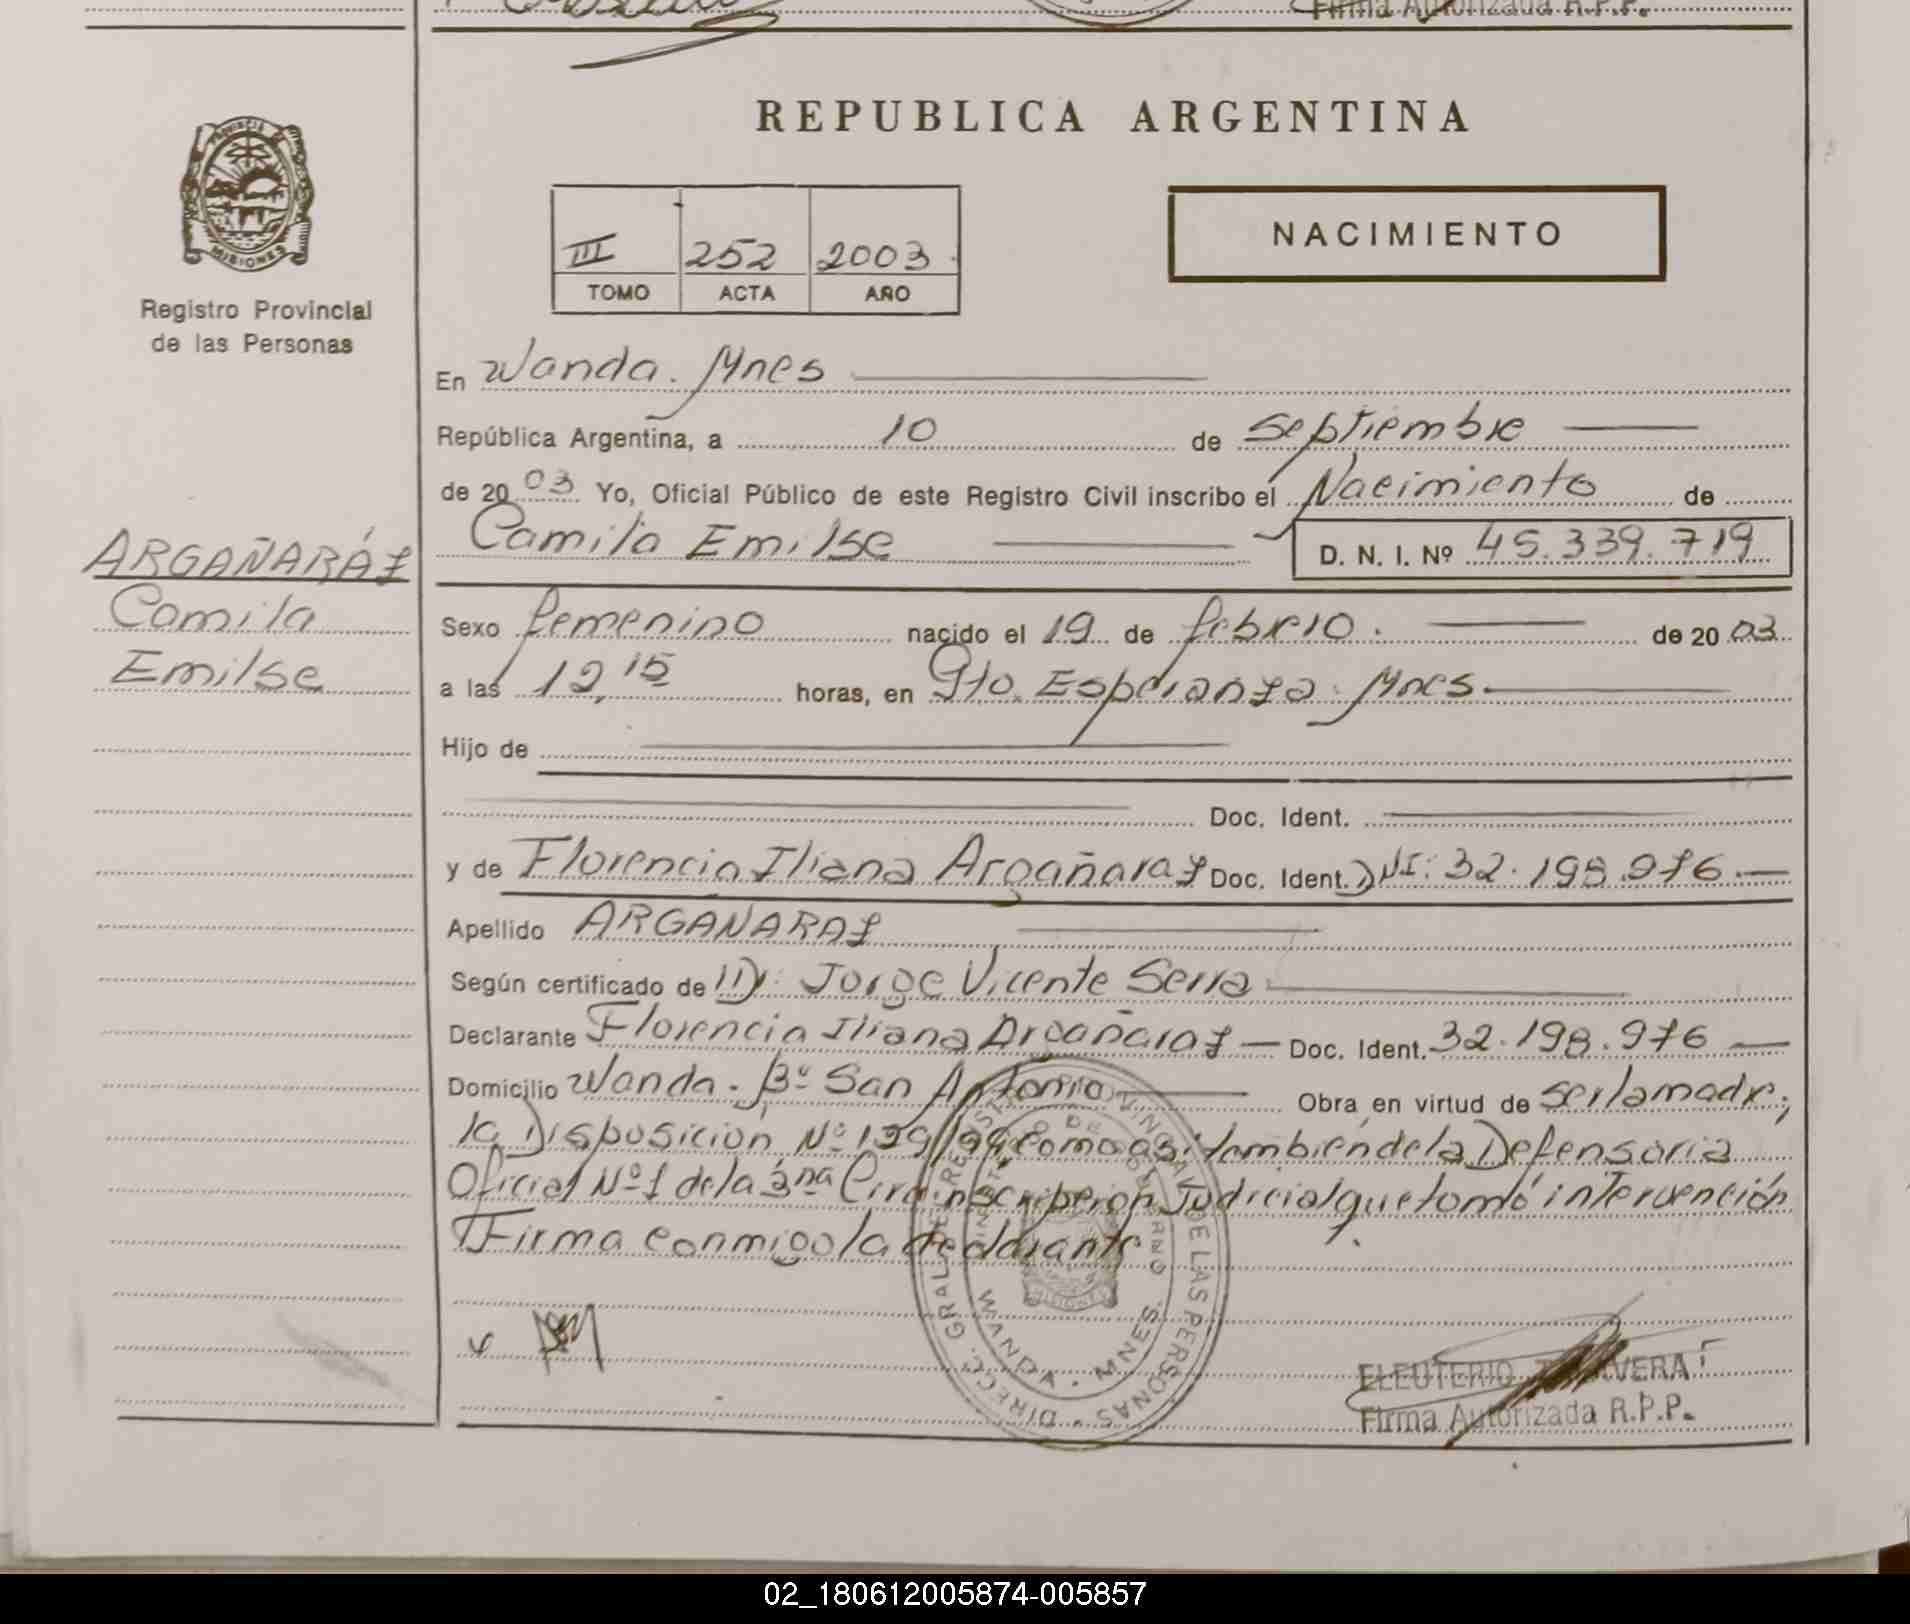 Firma Autorizada R.P.P.
REPUBLICA ARGENTINA
PROVINCIA DE
MISIONES
Registro Provincial
de las Personas
III 252 2003
TOMO ACTA AÑO
NACIMIENTO
En Wanda. Mnes
República Argentina, a 10 de Septiembre
de 2003 Yo, Oficial Público de este Registro Civil inscribo el Nacimiento de
Camila Emilse D. N. I. Nº 45.339.719
ARGAÑARÁZ
Camila
Emilse
Sexo femenino nacido el 19 de febrero. de 2003
a las 12,15 horas, en Pto. Esperanza. Mnes.
Hijo de
Doc. Ident.
y de Florencia Iliana Argañaraz Doc. Ident. DNI: 32.198.976.
Apellido ARGAÑARAZ
Según certificado de Dr. Jorge Vicente Serra
Declarante Florencia Iliana Argañaraz Doc. Ident. 32.198.976
Domicilio Wanda. Bº San Antonio Obra en virtud de ser la madre;
la Disposición Nº 129/99, como asi tambien de la Defensoria
Oficial Nº 1 de la 3ra Circunscripcion Judicial que tomó intervención
Firma conmigo la declarante
DIRECC. GRAL. DE REGISTRO PROVINCIAL DE LAS PERSONAS
MINISTERIO DE GOBIERNO
WANDA - MNES.
MISIONES
ELEUTERIO VERA
Firma Autorizada R.P.P.
02_180612005874-005857